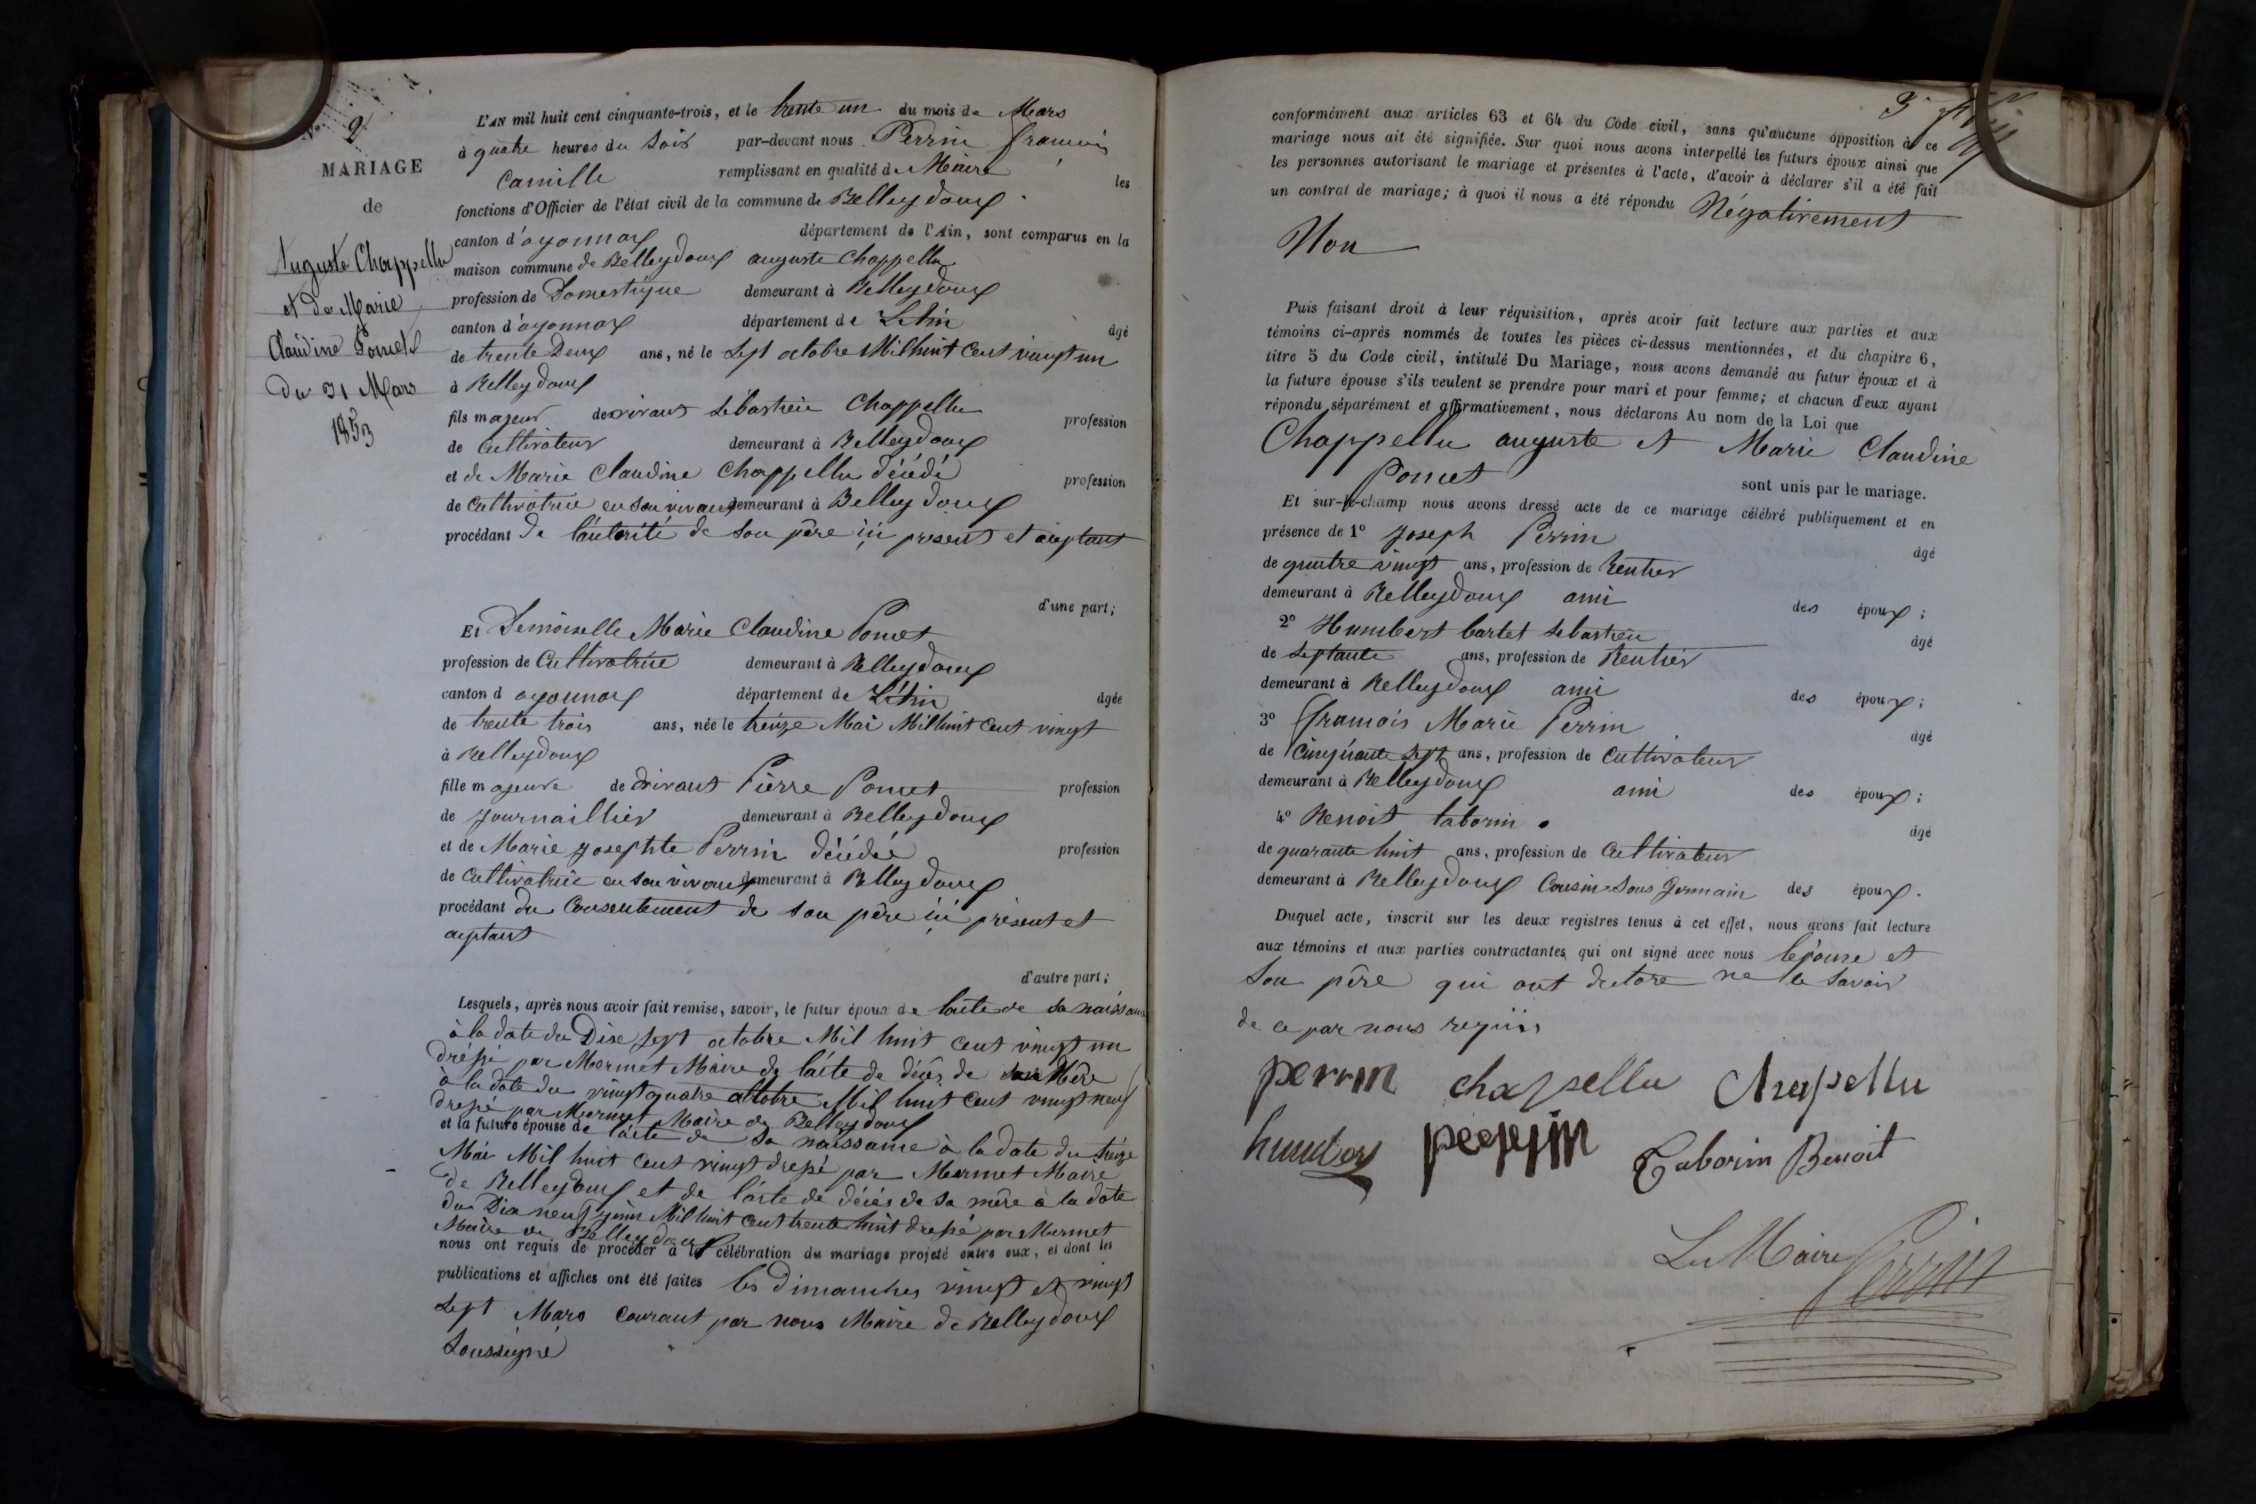 N° 2
MARIAGE
de
Auguste Chappellu
et de Marie
Claudine Poncet
Du 31 Mars
1853
L'AN mil huit cent cinquante-trois, et le trente un du mois de Mars
à quatre heures du Soir par-devant nous Perrin françois
Camille remplissant en qualité de Maire les
fonctions d'Officier de l'état civil de la commune de Belleydoux
canton d'oyonnax département de l'Ain, sont comparus en la
maison commune de Belleydoux auguste Chappellu
profession de Domestique demeurant à Belleydoux
canton d'oyonnax département de L'Ain âgé
de trente Deux ans, né le Sept octobre Mil huit Cent vingt un
à Belleydoux
fils majeur de vivant Sébastien Chappellu profession
de Cultivateur demeurant à Belleydoux
et de Marie Claudine Chappellu décédé profession
de Cultivatrice en son vivant demeurant à Belleydoux
procédant de l'autorité de son père ici présent et aceptant
d'une part;
Et Demoiselle Marie Claudine Poncet
profession de Cultivatrice demeurant à Belleydoux
canton d oyonnax département de L'Ain âgée
de trente trois ans, née le treize Mai Mil huit Cent vingt
à Belleydoux
fille majeure de vivant Pierre Poncet profession
de journaillier demeurant à Belleydoux
et de Marie josephte Perrin décédée profession
de Cultivatrice en son vivant demeurant à Belleydoux
procédant du Consentement de son père ici présent et
aceptant
d'autre part;
Lesquels, après nous avoir fait remise, savoir, le futur époux de l'acte de sa naissance
à la date du Dix Sept octobre Mil huit Cent vingt un
dressé par Mermet Maire de l'acte de décès de sa Mère
à la date du vingt quatre octobre Mil huit Cent vingt neuf
dressé par Mermet Maire de Belleydoux
et la future épouse de l'acte de sa naissance à la date du treize
Mai Mil huit Cent vingt dressé par Mermet Maire
de Belleydoux et de l'acte de décès de sa mère à la date
du Dix neuf juin Mil huit Cent trente huit dressé par Mermet
Maire de Belleydoux
nous ont requis de procéder à la célébration du mariage projeté entre eux, et dont les
publications et affiches ont été faites les Dimanches vingt et vingt
Sept Mars Courant par nous Maire de Belleydoux
Soussigné
conformément aux articles 63 et 64 du Code civil, sans qu'aucune opposition à ce
mariage nous ait été signifiée. Sur quoi nous avons interpellé les futurs époux ainsi que
les personnes autorisant le mariage et présentes à l'acte, d'avoir à déclarer s'il a été fait
un contrat de mariage; à quoi il nous a été répondu Négativement
Non
Puis faisant droit à leur réquisition, après avoir fait lecture aux parties et aux
témoins ci-après nommés de toutes les pièces ci-dessus mentionnées, et du chapitre 6,
titre 5 du Code civil, intitulé Du Mariage, nous avons demandé au futur époux et à
la future épouse s'ils veulent se prendre pour mari et pour femme; et chacun d'eux ayant
répondu séparément et affirmativement, nous déclarons Au nom de la Loi que
Chappellu auguste et Marie Claudine
Poncet sont unis par le mariage.
Et sur-le-champ nous avons dressé acte de ce mariage célébré publiquement et en
présence de 1° joseph Perrin âgé
de quatre vingt ans, profession de Rentier
demeurant à Belleydoux ami des époux;
2° Humbert bartet Sebastien âgé
de Septante ans, profession de Rentier
demeurant à Belleydoux ami des époux;
3° françois Marie Perrin âgé
de Cinquante Sept ans, profession de Cultivateur
demeurant à Belleydoux ami des époux;
4° Benoit taborin âgé
de quarante huit ans, profession de Cultivateur
demeurant à Belleydoux Cousin Sous Germain des époux.
Duquel acte, inscrit sur les deux registres tenus à cet effet, nous avons fait lecture
aux témoins et aux parties contractantes qui ont signé avec nous l'épouse et
Son père qui ont declare ne le savoir
de ce par nous requis
perrin chappellu Chapellu
Taborin Benoit
Le Maire Perrin